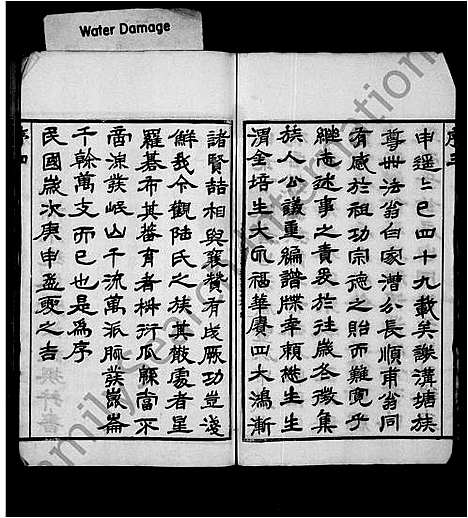 Water Damage
序三
申遥之已四十九載矣謙溝塘族
尊卅法翁白家漕分長順甫翁同
有感於祖功宗德之貽而難寬乎
繼志述事之責爰於往歲各徵集
族人公議重編譜牒幸賴懋生生
渭全培生大氏福華賡四大鴻漸
諸賢喆相與襄贊有成厥功豈淺
鮮哉今觀陸氏之族其散處者星
羅碁布其蕃育者椒衍瓜緜當不
啻源發岷山千流萬派脈發崑崙
千榦萬支而已也是為序
民國歲次庚申孟夏之吉
序四